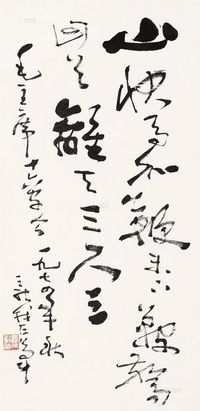 山快马加鞭未下鞍惊
回首离天三尺三
毛主席十六字令一九七四年秋